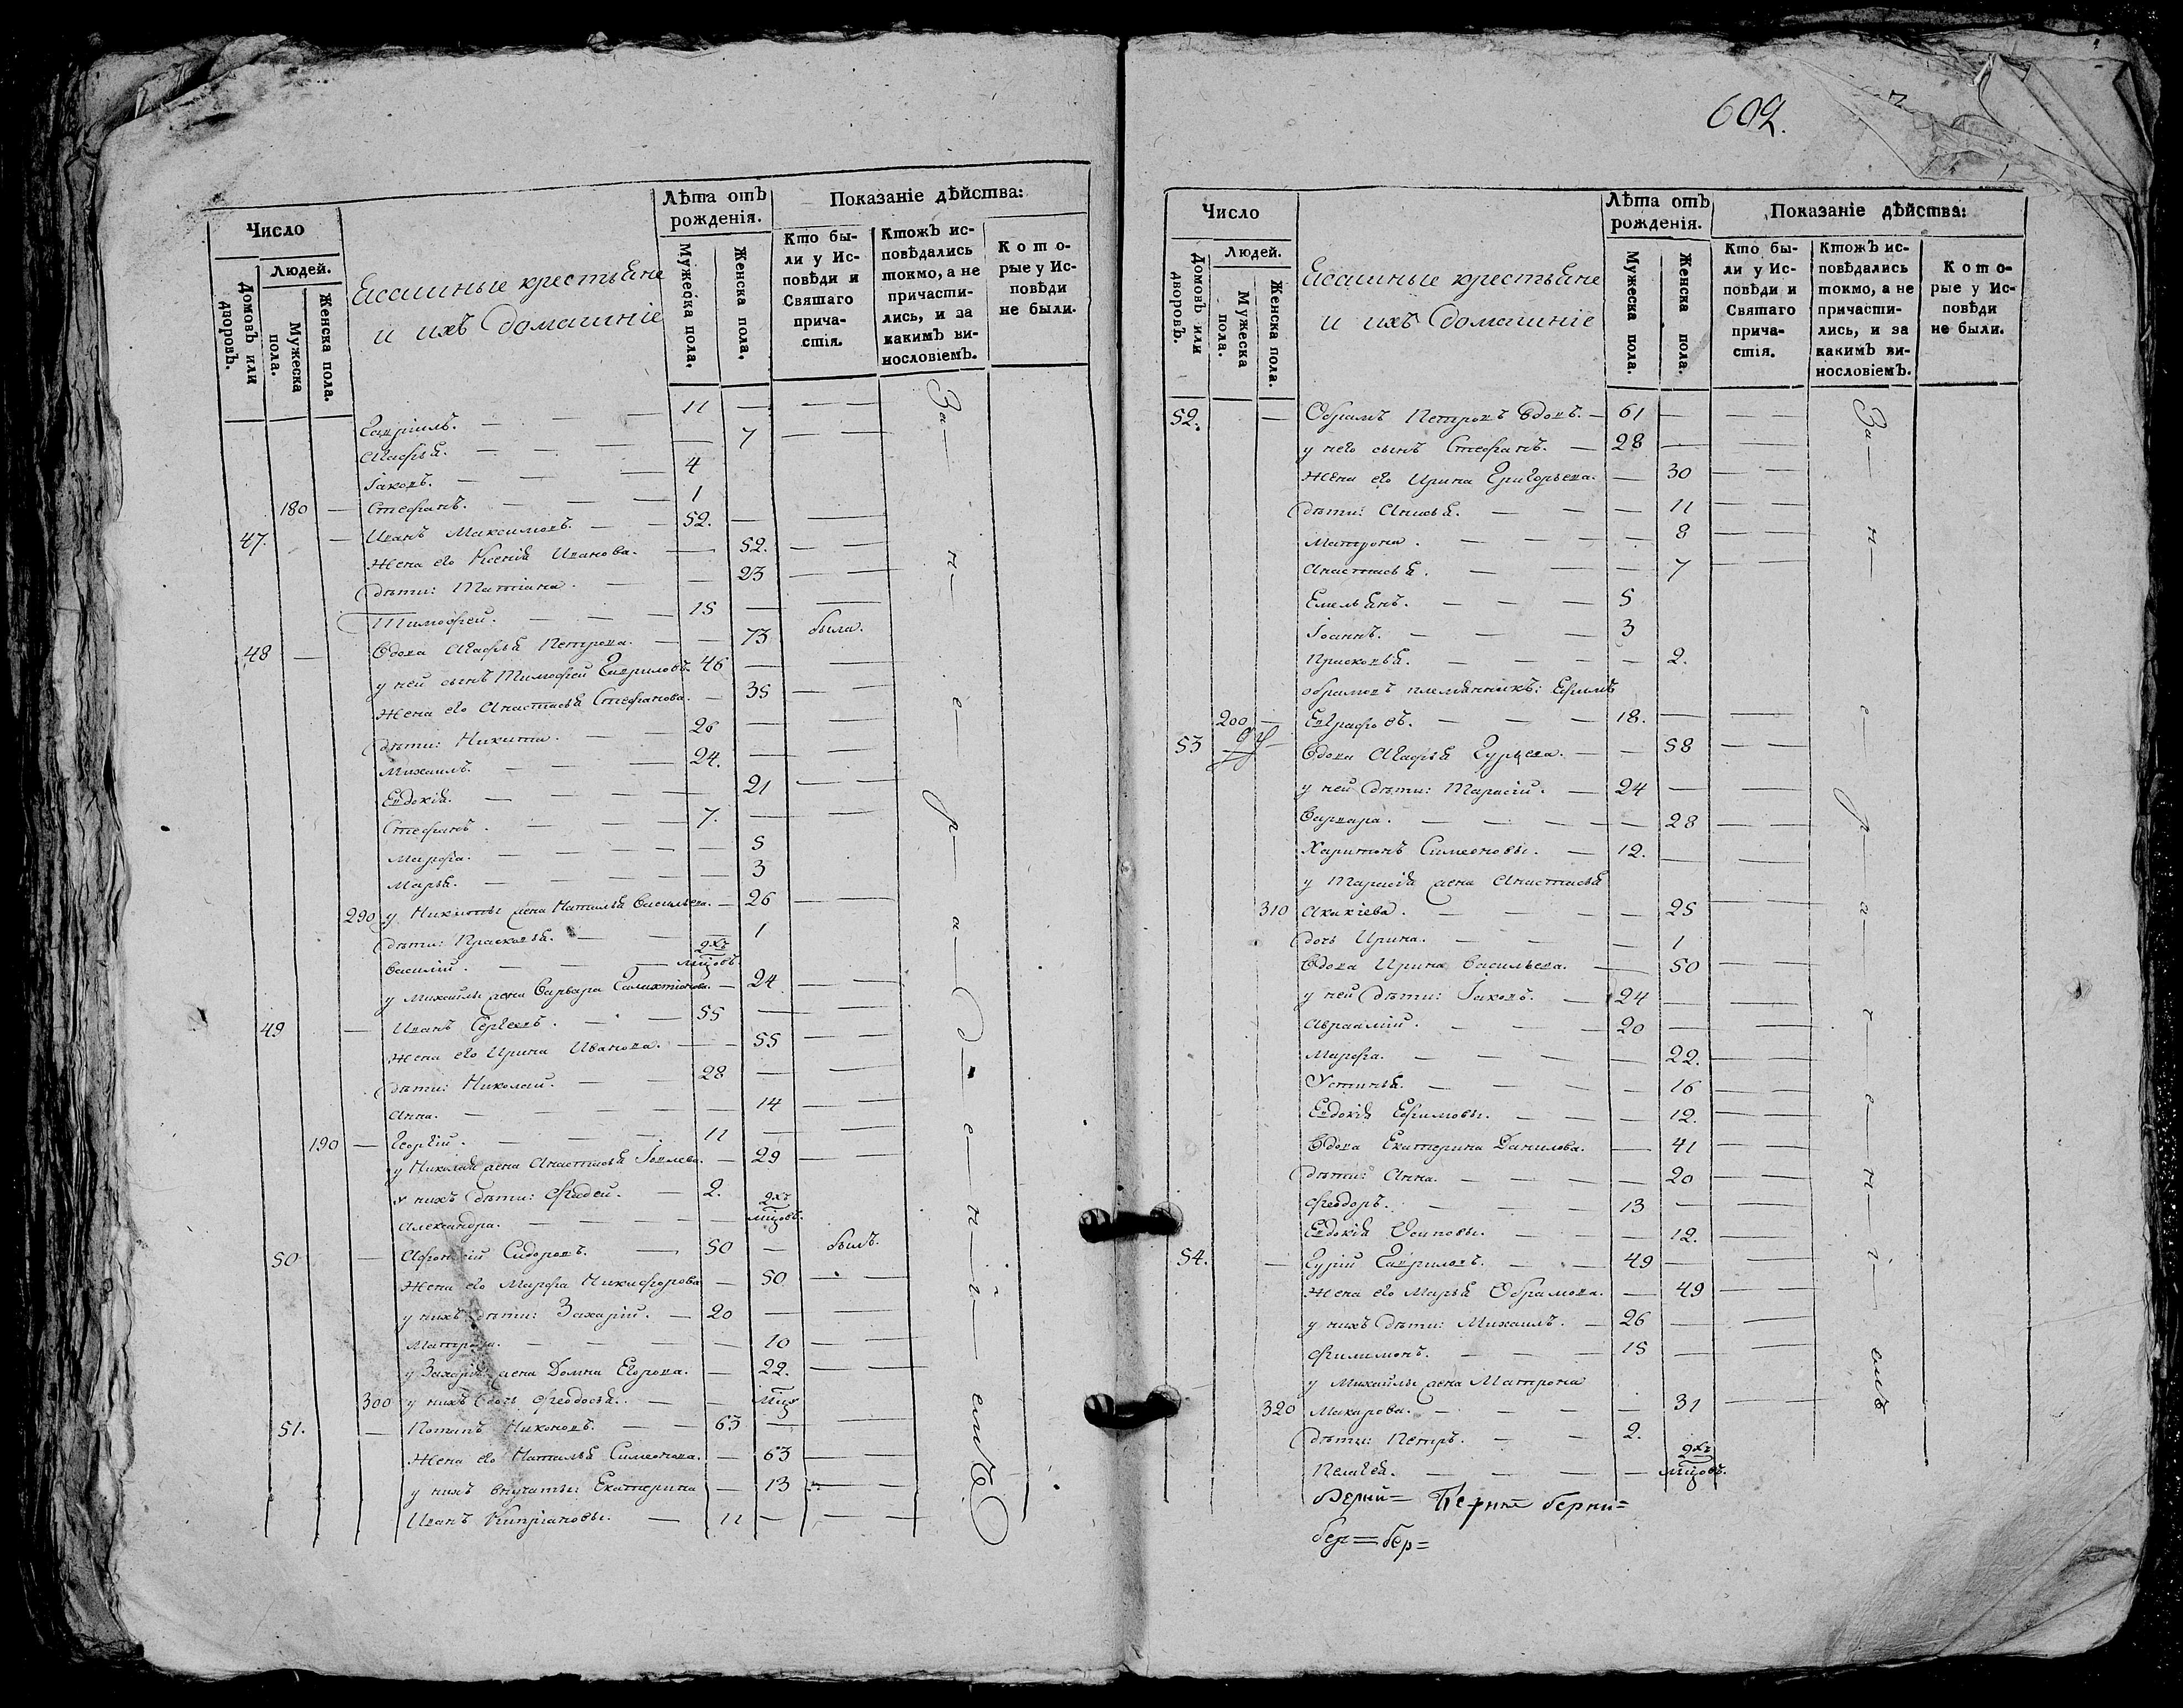 Число
Людей.
Домовъ или дворовъ.
Мужеска пола.
Женска пола.
крестьяне
и ихъ домашніе
Лѣта отъ рожденія.
Мужеска пола.
Женска пола.
Показаніе дѣйства:
Кто были у Исповѣди и Святаго причастія.
Ктожъ исповѣдались токмо, а не причастились, и за какимъ винословіемъ.
Которые у Исповѣди не были.
Гавріилъ. 11
Агафья. 7
Іаковъ. 4
180 Стефанъ. 1
47. Иванъ Максимовъ. 52.
Жена его Ксенія Иванова. 52.
дѣти: Татіана. 23
Тимофей. 15
48 Вдова Агафья Петрова. 73 была.
у ней сынъ Тимофей Гавриловъ. 46
Жена его Анастасья Стефанова. 35
дѣти: Никита. 26
Михаилъ. 24.
Евдокія. 21
Стефанъ. 7.
Марфа. 5
Марья. 3
290 у Никиты жена Наталья Васильева. 26
дѣти: Прасковья. 1
Василій. 2хъ мцовъ.
у Михаилы жена Варвара 24
49 Иванъ Сергеевъ. 55
Жена его Ирина Иванова. 55
дѣти: Николай. 28
Анна. 14
190 Георгій. 11
у Николая жена Анастасья Іовлева. 29
у нихъ дѣти: Фадей. 2.
Александра. 2хъ мцовъ.
50 Сидоровъ. 50 былъ.
Жена его Марфа Никифорова 50
у нихъ дѣти: Захарій. 20
Матрона. 10
у Захарія жена Домна Егорова. 22.
300 у нихъ дочь Феодосья. мцъ
51. Потапъ Никоновъ. 63
Жена его Наталья Симеонова. 63
у нихъ внучаты: Екатерина 13
Иванъ Кипріановы. 11
За н е р а д е н і емъ
602.
Число
Людей.
Домовъ или дворовъ.
Мужеска пола.
Женска пола.
крестьяне
и ихъ домашніе
Лѣта отъ рожденія.
Мужеска пола.
Женска пола.
Показаніе дѣйства:
Кто были у Исповѣди и Святаго причастія.
Ктожъ исповѣдались токмо, а не причастились, и за какимъ винословіемъ.
Которые у Исповѣди не были.
52. Обрамъ Петровъ вдовъ. 61
у него сынъ Стефанъ. 28
Жена его Ирина Григорьева. 30
дѣти: Анисья. 11
Матрона. 8
Анастасья. 7
Емельянъ. 5
Іоаннъ. 3
Прасковья. 2.
обрамовъ племянникъ: Ефимъ
200 Евграфовъ. 18.
53 Вдова Агафья Гурьева. 58
у ней дѣти: Тарасій. 24
Варвара. 28
Харитонъ Симеоновы. 12.
у Тарасія жена Анастасья
310 Акакіева. 25
дочь Ирина. 1
Вдова Ирина Васильева. 50
у ней дѣти: Іаковъ. 24
Авраамій. 20
Марфа. 22.
Устинья. 16
Евдокія Ефимовы. 12.
Вдова Екатерина Данилова. 41
дѣти: Анна. 20
Феодоръ. 13
Евдокія Осиповы. 12.
54. Гурій Гавриловъ. 49
Жена его Марья Обрамова. 49
у нихъ дѣти: Михаилъ. 26
Филимонъ. 15
у Михаилы жена Матрона
320 Макарова. 31
дѣти: Петръ. 2.
Пелагея. 2хъ мцовъ.
бер= бер=
За н е р а ч е н і емъ